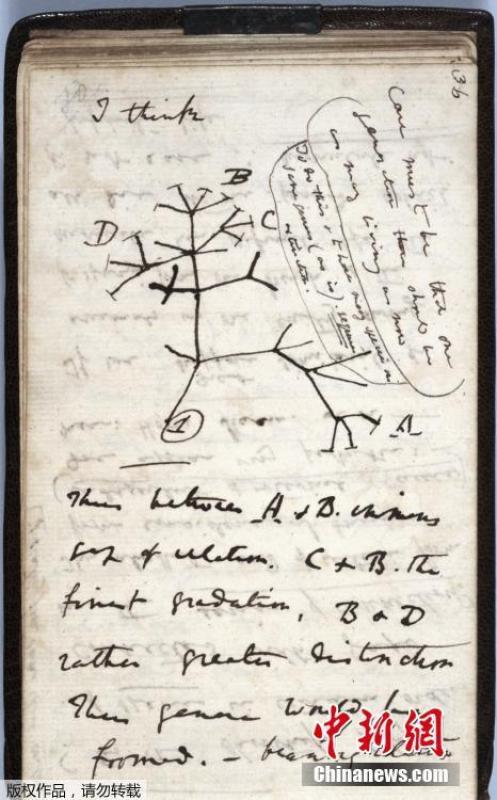 36
I think
Case must be that one
generation then should be
as many living as now
To do this & to have many species in
same genus (as is) requires
extinction.
B
C
D
1
A
Thus between A & B. immens
gap of relation. C & B. The
finest gradation, B & D
rather greater distinction
Thus genera would be
formed. — bearing relation
中新網
Chinanews.com
版权作品,请勿转载